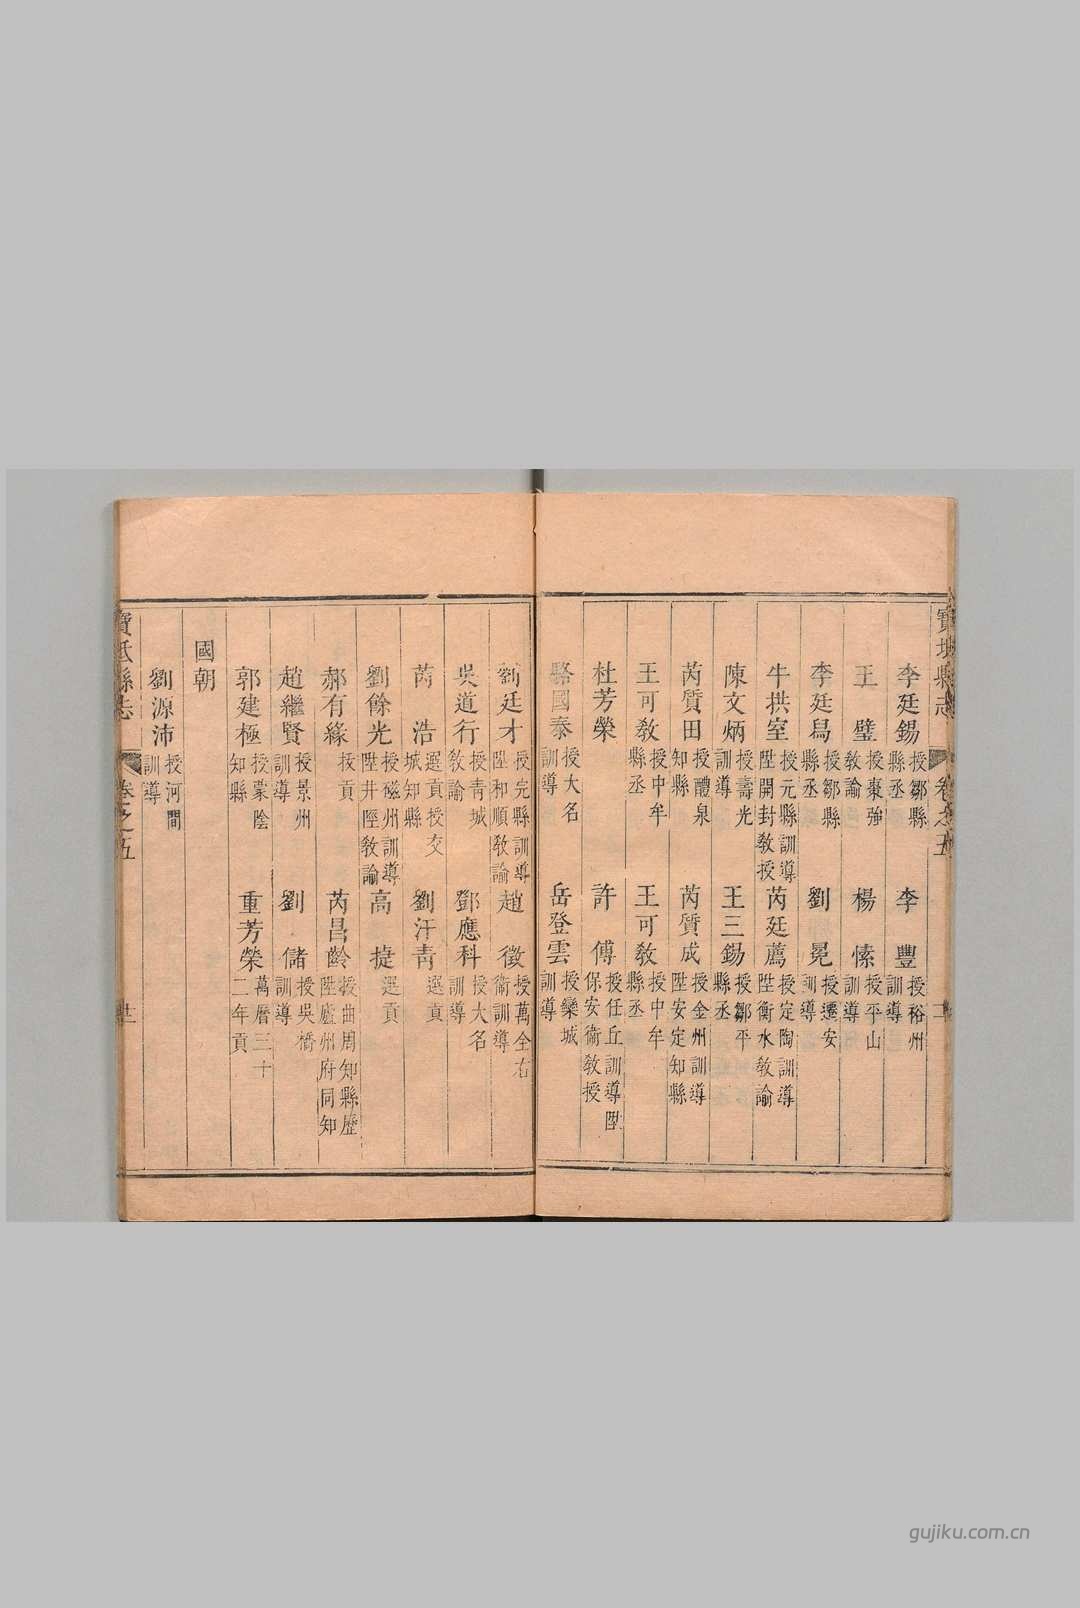 寶坻縣志
卷之五
李廷錫 授鄒縣縣丞 李豐 授裕州訓導
王璧 授棗強教諭 楊愫 授平山訓導
李廷舄 授鄒縣縣丞 劉冕 授遷安訓導
牛拱室 授元縣訓導陞開封教授 芮廷薦 授定陶訓導陞衡水教諭
陳文炳 授壽光訓導 王三錫 授鄒平縣丞
芮質田 授醴泉知縣 芮質成 授金州訓導陞安定知縣
王可教 授中牟縣丞 王可教 授中牟縣丞
杜芳榮 許傅 授任丘訓導陞保安衛教授
駱國泰 授大名訓導 岳登雲 授欒城訓導
劉廷才 授完縣訓導陞和順教諭 趙徵 授萬全右衛訓導
吳道行 授青城教諭 鄧應科 授大名訓導
芮浩 選貢授交城知縣 劉汗青 選貢
劉餘光 授磁州訓導陞井陘教諭 高捷 選貢
郝有緣 拔貢 芮昌齡 授曲周知縣歷陞廬州府同知
趙繼賢 授景州訓導 劉儲 授吳橋訓導
郭建極 授蒙陰知縣 重芳榮 萬曆三十二年貢
國朝
劉源沛 授河間訓導
寶坻縣志
卷之五
廿
gujiku.com.cn